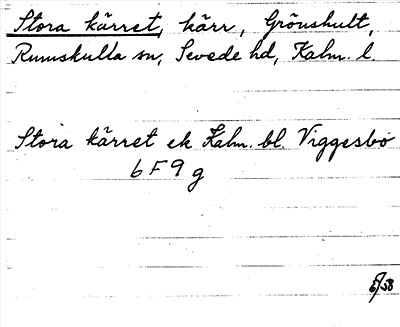 Stora kärret, kärr, Grönshult,
Rumskulla sn, Sevede hd, Kalm. l.
Stora kärret ek Kalm. bl. Viggesbo
6 F 9 g